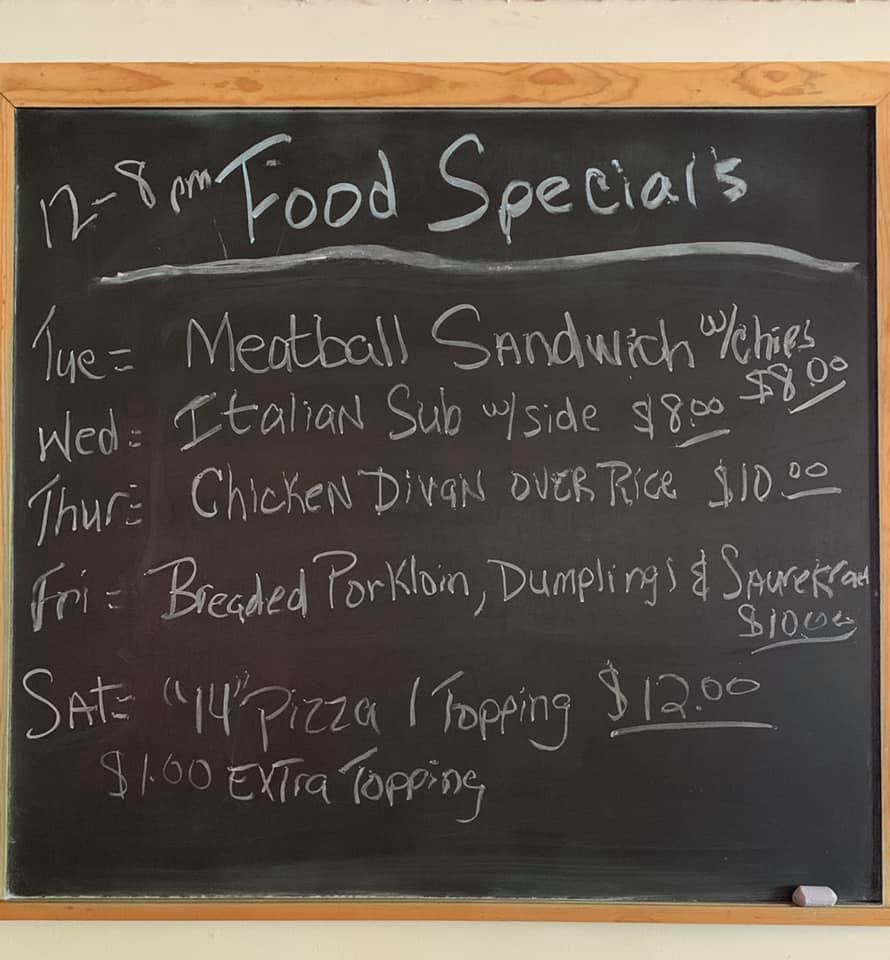 12-8 pm Food Specials
Tue= Meatball Sandwich w/chips
$8.00
Wed= Italian Sub w/side $8.00
Thur= Chicken Divan over Rice $10.00
Fri= Breaded Porkloin, Dumplings & Saurekraut
$10.00
Sat= "14" Pizza 1 Topping $12.00
$1.00 Extra Topping